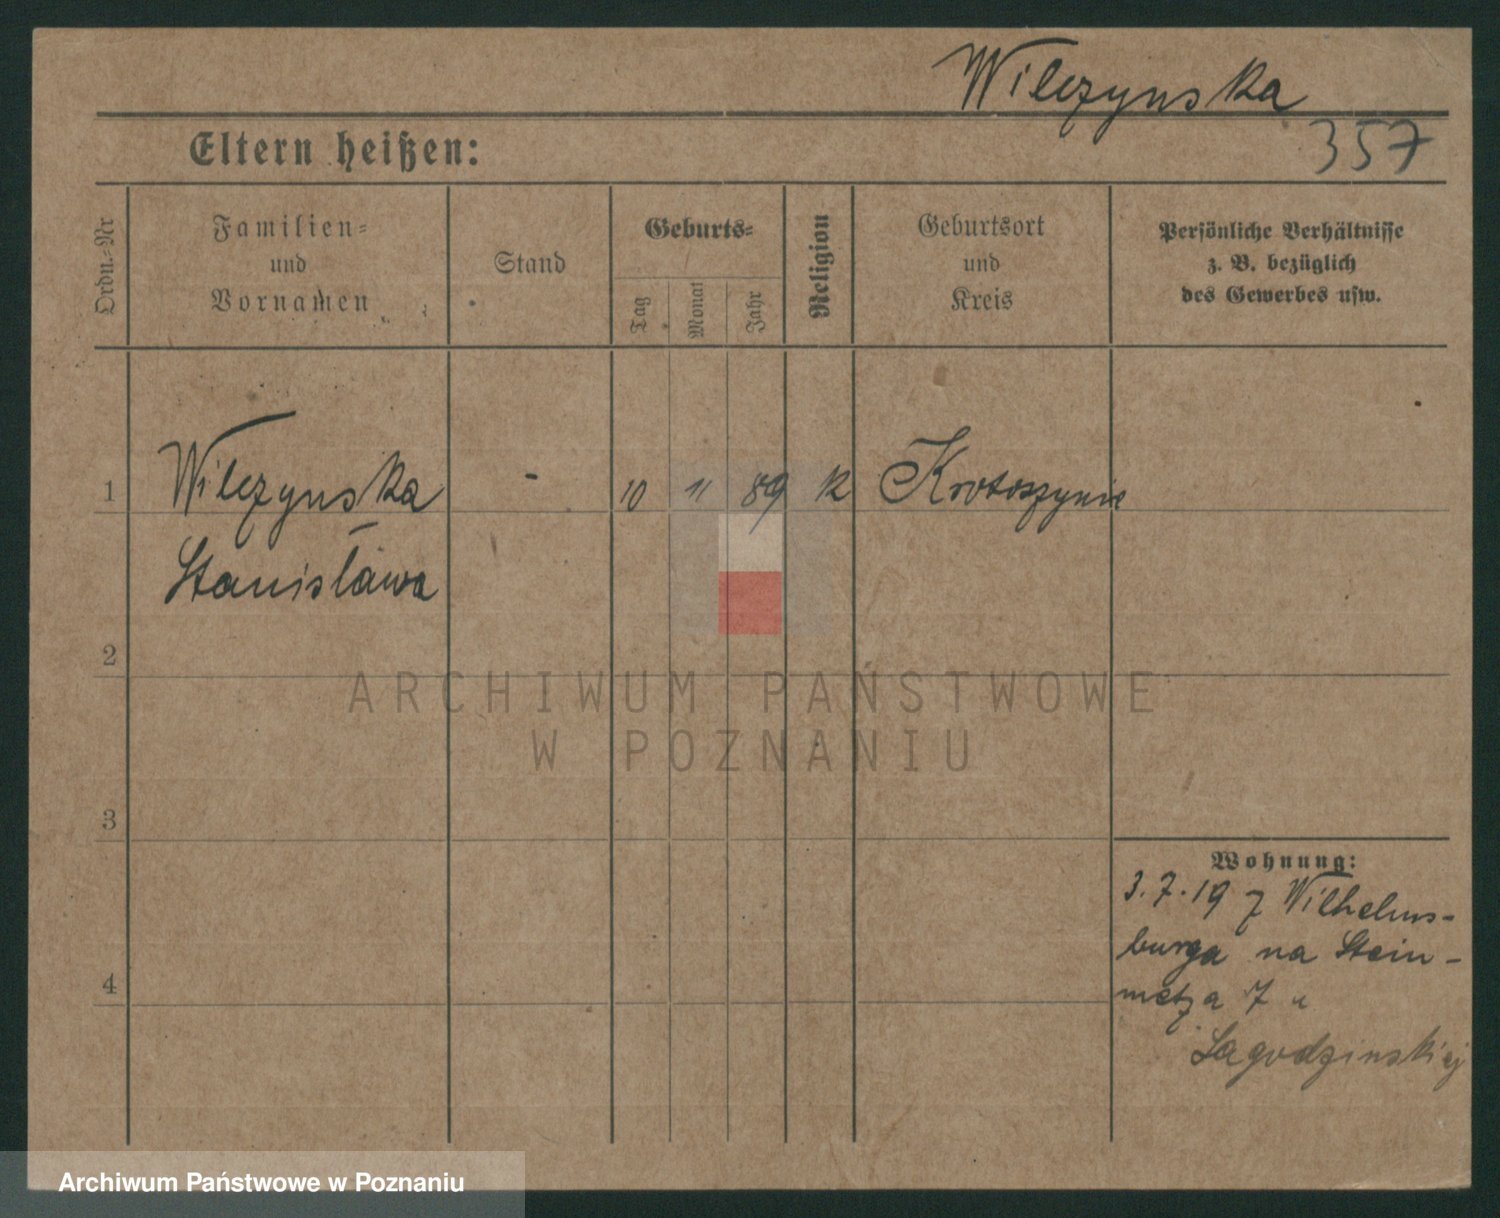 Wilczynska
357
Eltern heißen:
Ordn.-Nr
Familien-
und
Vornamen
Stand
Geburts-
Tag
Monat
Jahr
Religion
Geburtsort
und
Kreis
Persönliche Verhältnisse
z. B. bezüglich
des Gewerbes usw.
1
Wilczynska
Stanisława
-
10
11
89
K
Krotoszynie
2
3
4
Wohnung:
3.7.19 z Wilhelms-
burga na Stein-
metza 7 u
Lagodzinskiej
ARCHIWUM PAŃSTWOWE
W POZNANIU
Archiwum Państwowe w Poznaniu